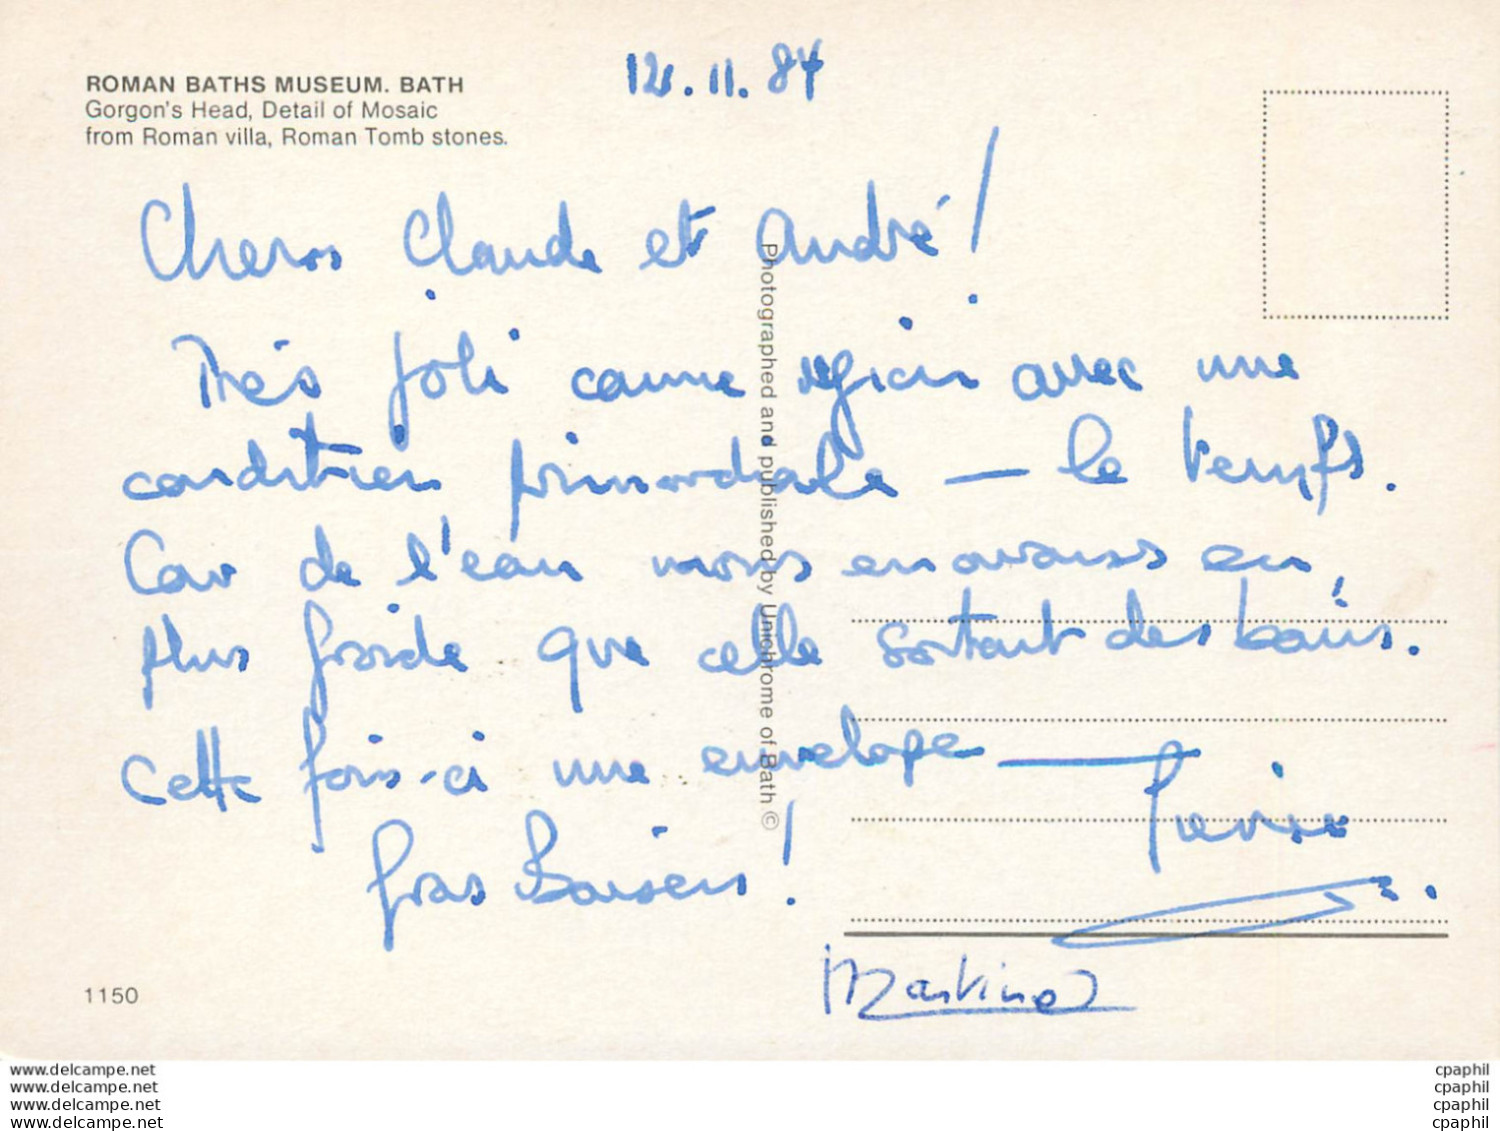 12.11.84
ROMAN BATHS MUSEUM. BATH
Gorgon's Head, Detail of Mosaic
from Roman villa, Roman Tomb stones.
Chers Claude et André !
Très joli comme region avec une
condition primordiale — le temps.
Car de l'eau nous en avons eu,
plus froide que celle sortant des bains.
Cette fois-ci une envelope —
Gros Baisers !
Martine
1150
Photographed and published by Unichrome of Bath ©
www.delcampe.net
www.delcampe.net
www.delcampe.net
www.delcampe.net
cpaphil
cpaphil
cpaphil
cpaphil